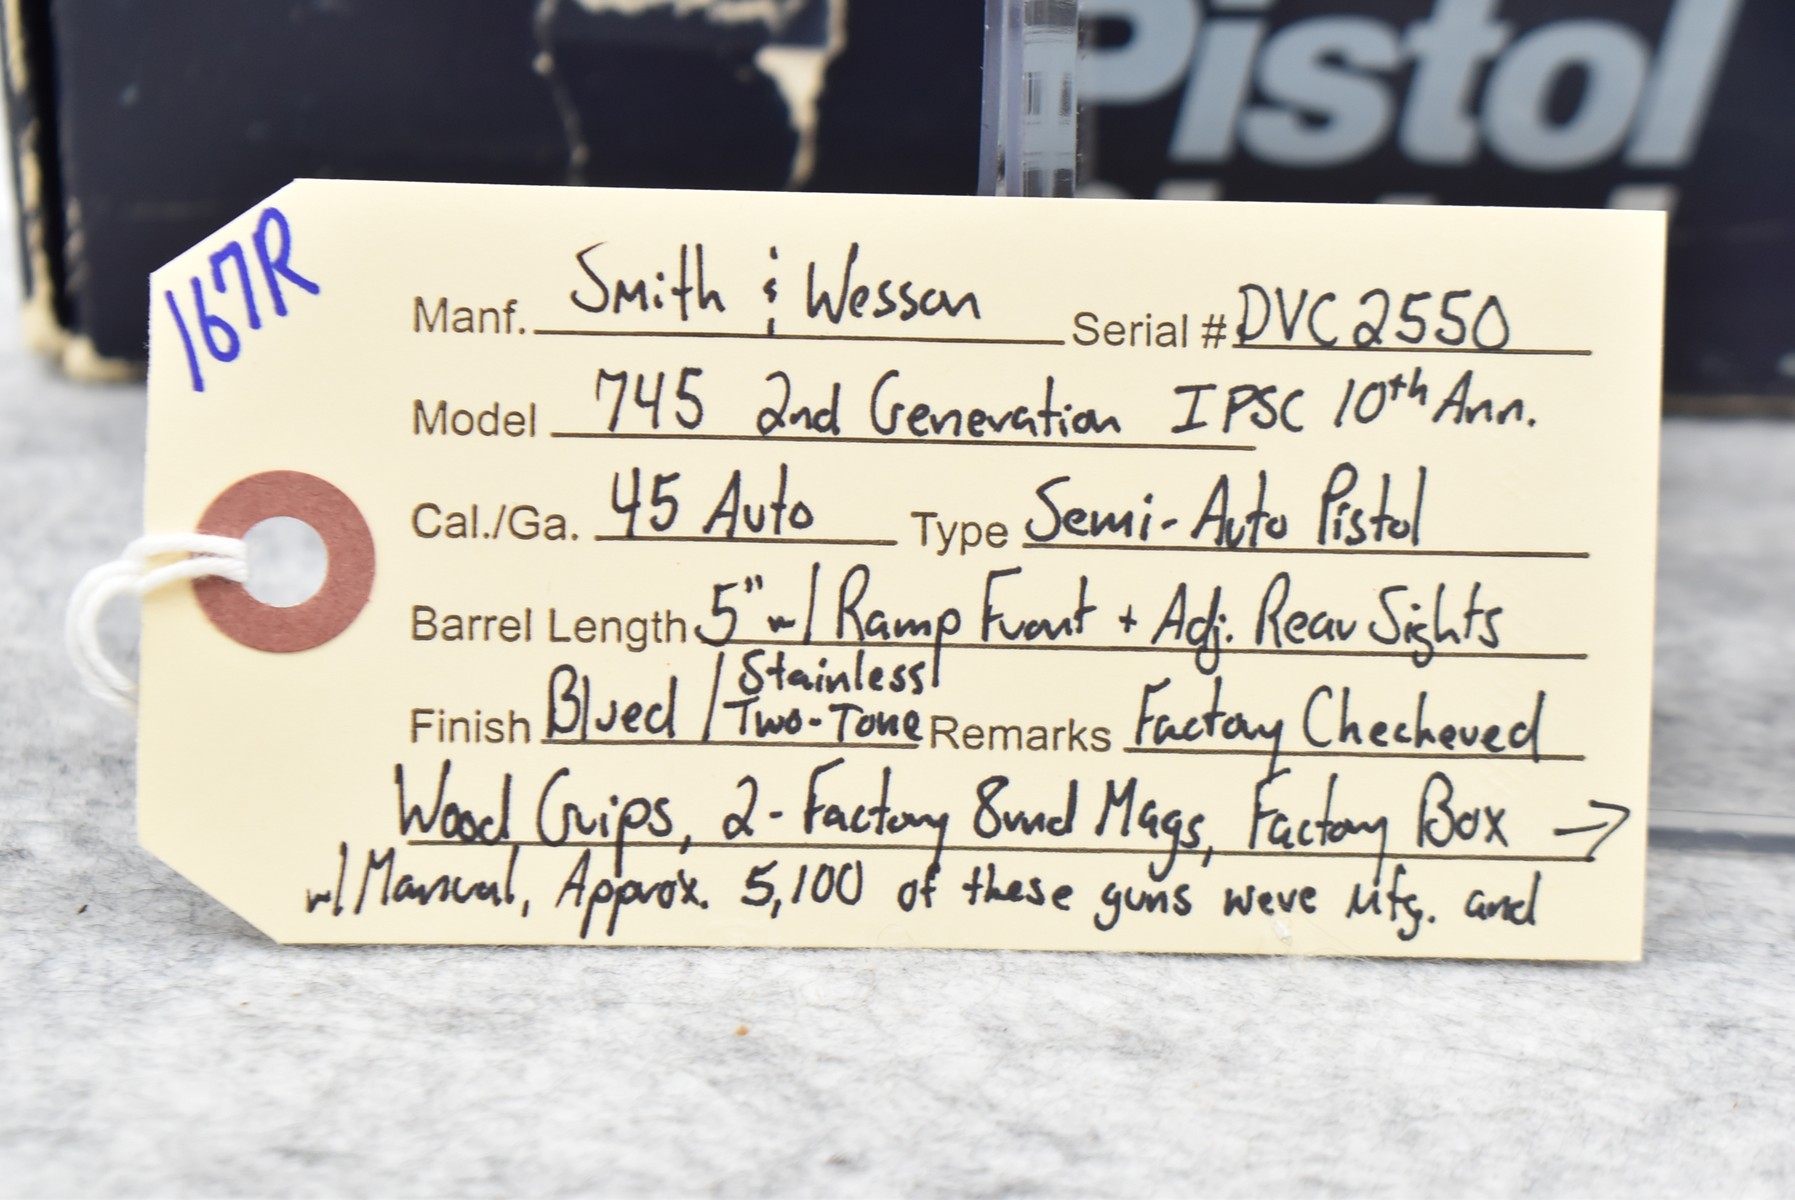 Pistol
167R
Manf. Smith & Wesson Serial # DVC2550
Model 745 2nd Generation IPSC 10th Ann.
Cal./Ga. 45 Auto Type Semi-Auto Pistol
Barrel Length 5" w/ Ramp Front + Adj. Rear Sights
Finish Blued / Stainless Two-Tone Remarks Factory Checkered
Wood Grips, 2-Factory 8rnd Mags, Factory Box →
w/ Manual, Approx. 5,100 of these guns were Mfg. and